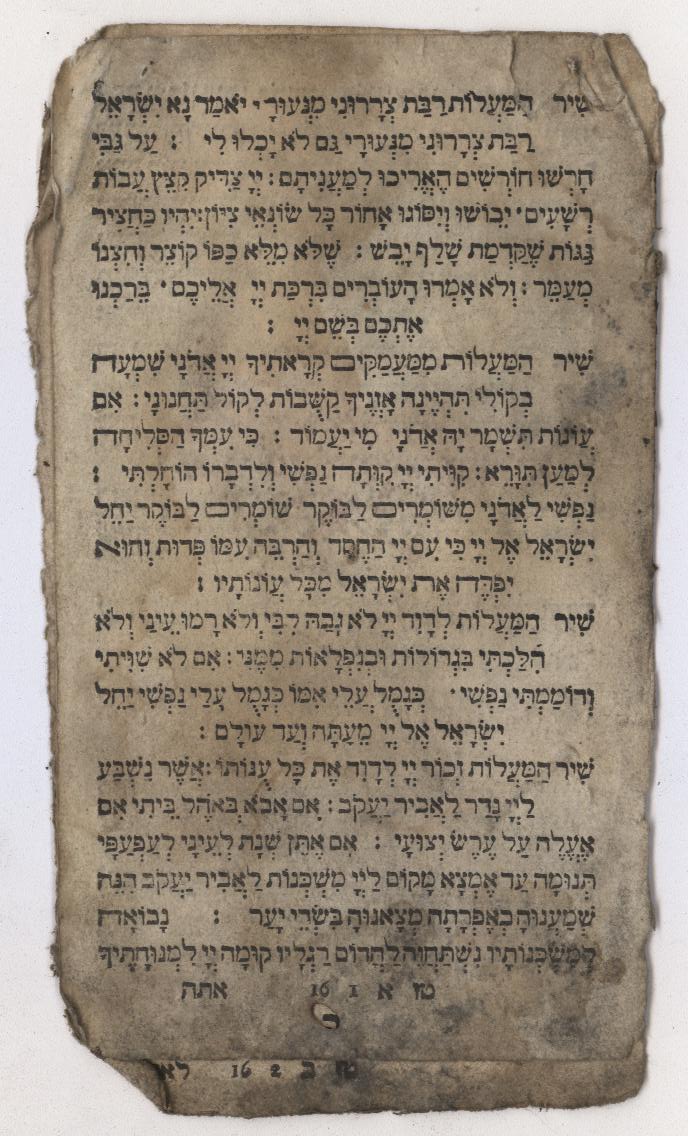 שִׁיר הַמַּעֲלוֹת רַבַּת צְרָרוּנִי מִנְּעוּרָי יֹאמַר נָא יִשְׂרָאֵל
רַבַּת צְרָרוּנִי מִנְּעוּרָי גַּם לֹא יָכְלוּ לִי : עַל גַּבִּי
חָרְשׁוּ חוֹרְשִׁים הֶאֱרִיכוּ לְמַעֲנִיתָם : יְיָ צַדִּיק קִצֵּץ עֲבוֹת
רְשָׁעִים · יֵבוֹשׁוּ וְיִסּוֹגוּ אָחוֹר כָּל שׂוֹנְאֵי צִיּוֹן : יִהְיוּ כַּחֲצִיר
גַּגּוֹת שֶׁקַּדְמַת שָׁלַף יָבֵשׁ : שֶׁלֹּא מִלֵּא כַפּוֹ קוֹצֵר וְחִצְנוֹ
מְעַמֵּר : וְלֹא אָמְרוּ הָעוֹבְרִים בִּרְכַּת יְיָ אֲלֵיכֶם · בֵּרַכְנוּ
אֶתְכֶם בְּשֵׁם יְיָ :
שִׁיר הַמַּעֲלוֹת מִמַּעֲמַקִּים קְרָאתִיךָ יְיָ אֲדֹנָי שִׁמְעָה
בְקוֹלִי תִּהְיֶינָה אָזְנֶיךָ קַשֻּׁבוֹת לְקוֹל תַּחֲנוּנָי : אִם
עֲוֹנוֹת תִּשְׁמָר יָהּ אֲדֹנָי מִי יַעֲמוֹד : כִּי עִמְּךָ הַסְּלִיחָה
לְמַעַן תִּוָּרֵא : קִוִּיתִי יְיָ קִוְּתָה נַפְשִׁי וְלִדְבָרוֹ הוֹחָלְתִּי :
נַפְשִׁי לַאֲדֹנָי מִשּׁוֹמְרִים לַבּוֹקֶר שׁוֹמְרִים לַבּוֹקֶר יַחֵל
יִשְׂרָאֵל אֶל יְיָ כִּי עִם יְיָ הַחֶסֶד וְהַרְבֵּה עִמּוֹ פְדוּת וְהוּא
יִפְדֶּה אֶת יִשְׂרָאֵל מִכֹּל עֲוֹנוֹתָיו :
שִׁיר הַמַּעֲלוֹת לְדָוִד יְיָ לֹא גָבַהּ לִבִּי וְלֹא רָמוּ עֵינַי וְלֹא
הִלַּכְתִּי בִּגְדוֹלוֹת וּבְנִפְלָאוֹת מִמֶּנִּי : אִם לֹא שִׁוִּיתִי
וְדוֹמַמְתִּי נַפְשִׁי · כְּגָמֻל עֲלֵי אִמּוֹ כַּגָּמֻל עָלַי נַפְשִׁי יַחֵל
יִשְׂרָאֵל אֶל יְיָ מֵעַתָּה וְעַד עוֹלָם :
שִׁיר הַמַּעֲלוֹת זְכוֹר יְיָ לְדָוִד אֶת כָּל עֻנּוֹתוֹ : אֲשֶׁר נִשְׁבַּע
לַיְיָ נָדַר לַאֲבִיר יַעֲקֹב : אִם אָבֹא בְּאֹהֶל בֵּיתִי אִם
אֶעֱלֶה עַל עֶרֶשׂ יְצוּעָי : אִם אֶתֵּן שְׁנַת לְעֵינָי לְעַפְעַפַּי
תְּנוּמָה עַד אֶמְצָא מָקוֹם לַיְיָ מִשְׁכָּנוֹת לַאֲבִיר יַעֲקֹב הִנֵּה
שְׁמַעֲנוּהָ בְאֶפְרָתָה מְצָאנוּהָ בִּשְׂדֵי יָעַר : נָבוֹאָה
לְמִשְׁכְּנוֹתָיו נִשְׁתַּחֲוֶה לַהֲדוֹם רַגְלָיו קוּמָה יְיָ לִמְנוּחָתֶיךָ
טז א 1 16 אתה
טז ב 2 16